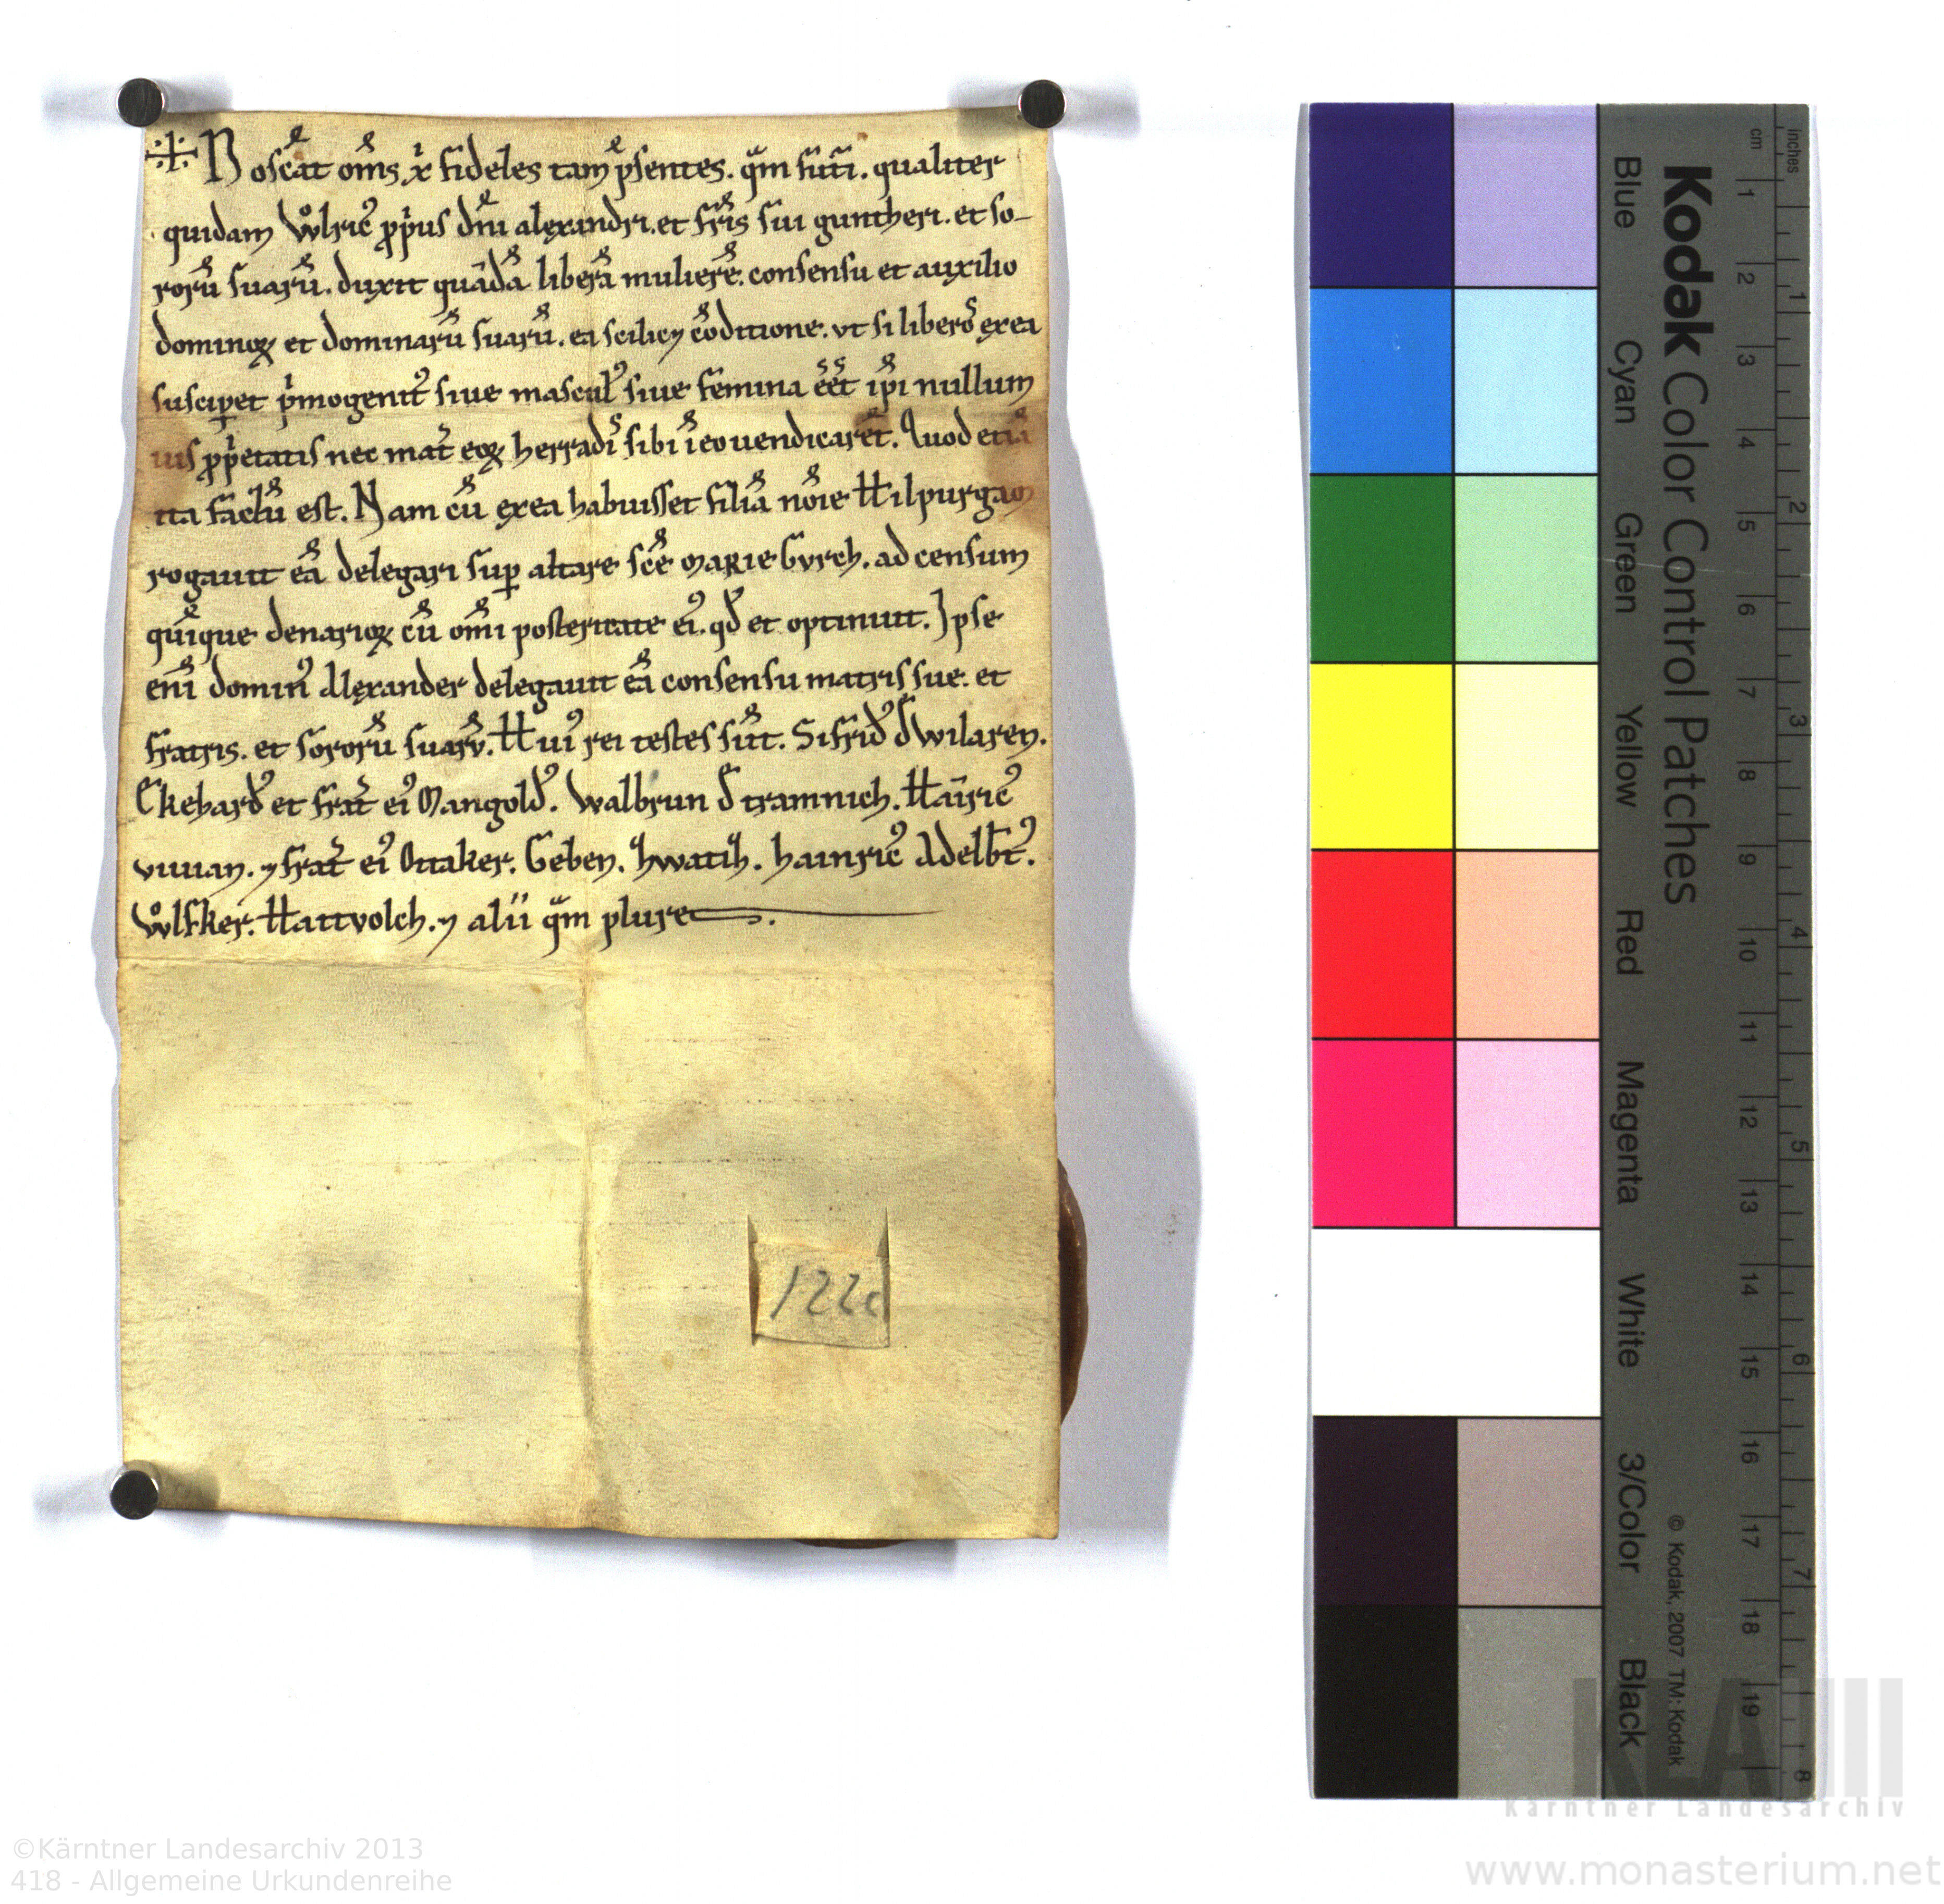 Noscāt om̄s xͥ fideles tam p̄sentes. qͣm fut̄i. qualiter
quidam Wͦlric᷒ ꝓpͥus dn̄i alexandri. et fr̄is sui guntheri. et so-
rorū suarū. duxit quādā liberā mulierē. consensu et auxilio
dominoꝝ et dominarū suarū. ea scilicꝫ cōditione. vt si liberos̄ exea
susciꝑet pͥmogenit᷒ siue mascul᷒ siue femina ēēt ip̄i nullum
ius ꝓpͥetatis nec mat̄ eoꝝ herradis̄ sibi ī eo uendicarēt. Quod etiā
ita factū est. Nam cū exea habuisset filiā nōie Hilpurgam
rogauit eā delegari suꝑ altare sc̄e MARIE Gvrch. ad censum
qͥnque denarioꝝ cū om̄i posteritate ei᷒. qd̄ et optinuit. Ipse
eni᷒ domin᷒ Alexander delegauit eā consensu matris sue. et
fratris. et sororū suarv̄. Hui᷒ rei testes sūt. Sifrid᷒ d̄ wilaren.
Ekehard᷒ et frat̄ ei᷒ Mangold᷒. Walbrun d̄ tramnich. Hāiric᷒
viuian. ⁊ frat̄ ei᷒ Ottaker. Geben. hainric᷒ Adelbt᷒.
Wͦlfker. Hattvolch. ⁊ alii qͣm plures.
122d
Kodak Color Control Patches
Blue Cyan Green Yellow Red Magenta White 3/Color Black
© Kodak, 2007 TM: Kodak
cm 1 2 3 4 5 6 7 8 9 10 11 12 13 14 15 16 17 18 19
inches 1 2 3 4 5 6 7 8
KLA
Kärntner Landesarchiv
©Kärntner Landesarchiv 2013
418 - Allgemeine Urkundenreihe
www.monasterium.net